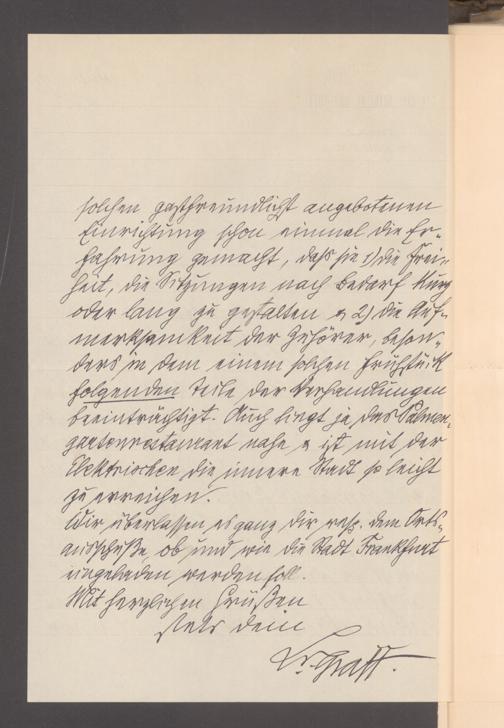 solchen gastfreundlichst angebotenen
Einrichtung schon einmal die Er-
fahrung gemacht, daß sie 1) die Frei-
heit, die Sitzungen nach Bedarf kurz
oder lang zu gestalten & 2) die Auf-
merksamkeit der Zuhörer, beson-
ders in dem einem solchen Frühstück
folgenden Teile der Verhandlungen
beeinträchtigt. Auch liegt ja das Palmen-
gartenrestaurant nahe & ist mit der
Elektrischen die innere Stadt so leicht
zu erreichen.
Wir überlassen es ganz Dir resp. dem Orts-
ausschuße, ob und wie die Stadt Frankfurt
eingeladen werden soll.
Mit herzlichen Grüßen
stets Dein
Graff.